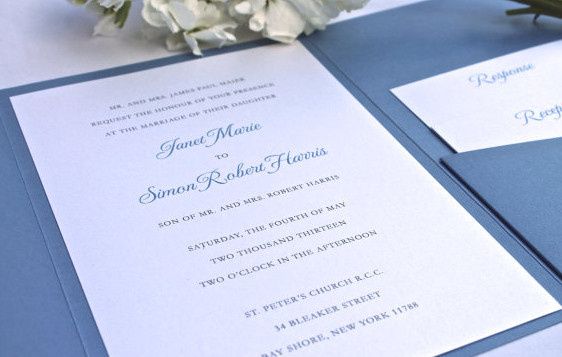 MR. AND MRS. JAMES PAUL MAIER
REQUEST THE HONOUR OF YOUR PRESENCE
AT THE MARRIAGE OF THEIR DAUGHTER
Janet Marie
TO
Simon Robert Harris
SON OF MR. AND MRS. ROBERT HARRIS
SATURDAY, THE FOURTH OF MAY
TWO THOUSAND THIRTEEN
TWO O'CLOCK IN THE AFTERNOON
ST. PETER'S CHURCH R.C.C.
34 BLEAKER STREET
BAY SHORE, NEW YORK 11788
Response